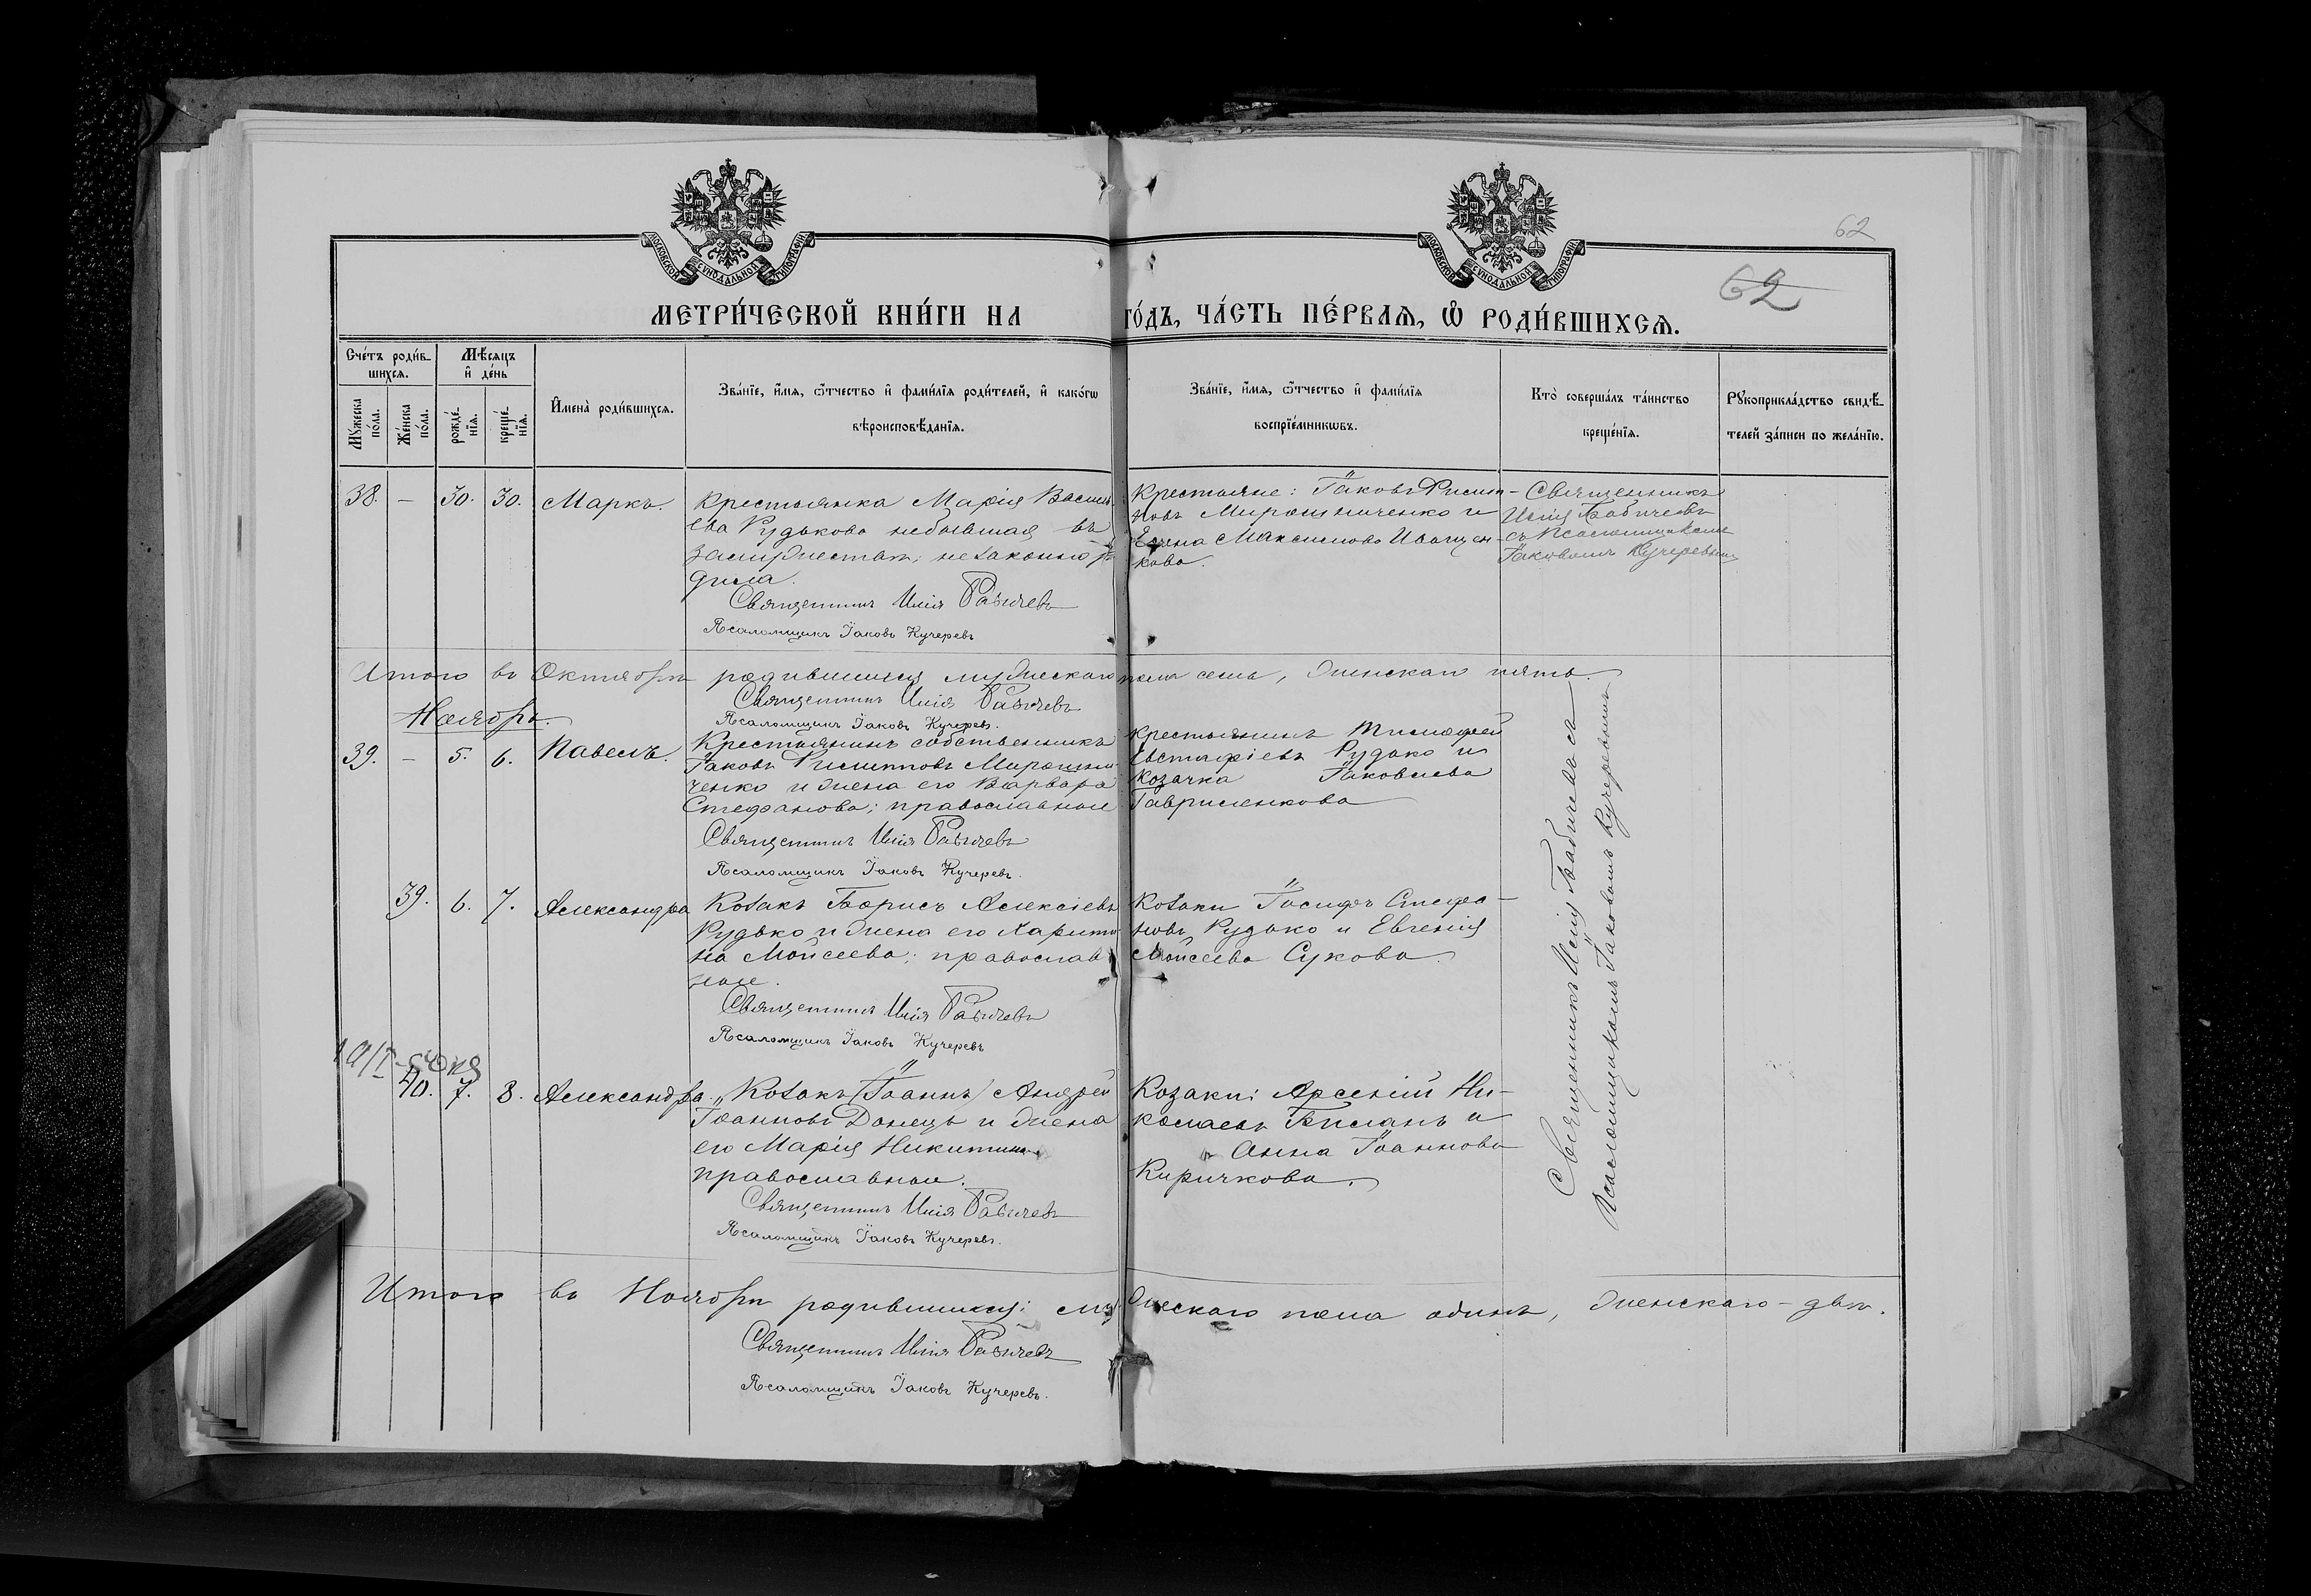 62
62
МОСКОВСКОЙ СѴНОДАЛЬНОЙ ТИПОГРАФІИ
МОСКОВСКОЙ СѴНОДАЛЬНОЙ ТИПОГРАФІИ
МЕТРИ́ЧЕСКОЙ КНИ́ГИ НА ГО́ДЪ, ЧА́СТЬ ПЕ́РВАѦ, Ѽ РОДИ́ВШИХСѦ.
Сче́тъ роди́в-
шихсѧ.
Мꙋ́жеска
по́ла.
Же́нска
по́ла.
Мѣ́сяцъ
и҆ де́нь
рожде́-
нїѧ.
креще́-
нїѧ.
И҆мена̀ роди́вшихсѧ.
Зва́нїе, и҆́мѧ, ѻ҆́тчество и҆ фами́лїѧ роди́телей, и҆ како́гѡ
вѣроисповѣ́данїѧ.
Зва́нїе, и҆́мѧ, ѻ҆́тчество и҆ фами́лїѧ
воспрїе́мникѡвъ.
Кто̀ соверша́лъ та́инство
креще́нїѧ.
Рꙋкоприкла́дство свидѣ́-
телей за́писи по жела́нїю.
38. – 30. 30. Маркъ.
Крестьянка Марія Василь
ева Рудькова небывшая въ
замужествѣ; незаконно ро
дила.
Священникъ Илія Бабичевъ
Псаломщикъ Іаковъ Кучеревъ
Крестьяне: Іаковъ Филип-
повъ Мирошниченко и
Елена Максимова Иващен-
кова.
Священникъ
Илія Бабичевъ
съ Псаломщикомъ
Іаковомъ Кучеревымъ
Итого въ Октябрѣ родившихся мужескаго пола семь, женскаго пять.
Священникъ Илія Бабичевъ
Псаломщикъ Іаковъ Кучеревъ.
Ноябрь.
39. – 5. 6. Павелъ.
Крестьянинъ собственникъ
Іаковъ Филипповъ Мирошни
ченко и жена его Варвара
Стефанова; православные
Священникъ Илія Бабичевъ
Псаломщикъ Іаковъ Кучеревъ.
Крестьянинъ Тимофей
Евстафіевъ Рудько и
козачка Іаковлева
Гавриленкова
39. 6. 7. Александра
Козакъ Борисъ Алексіевъ
Рудько и жена его Харити
на Мойсеева; православ
ные.
Священникъ Илія Бабичевъ
Псаломщикъ Іаковъ Кучеревъ
Козаки Іосифъ Стефа-
новъ Рудько и Евгенія
Мойсеева Сукова.
40. 7. 8. Александра.
Козакъ (Іоаннъ) Андрей
Іоанновъ Донецъ и жена
его Марія Никитина
православные.
Священникъ Илія Бабичевъ
Псаломщикъ Іаковъ Кучеревъ.
Козаки: Арсеній Ни-
колаевъ Биланъ и
Анна Іоаннова
Киричкова.
Священникъ Илія Бабичевъ съ
Псаломщикомъ Іаковомъ Кучеревымъ
Итого въ Ноябрѣ родившихся: мужескаго пола одинъ, женскаго – двѣ.
Священникъ Илія Бабичевъ
Псаломщикъ Іаковъ Кучеревъ.